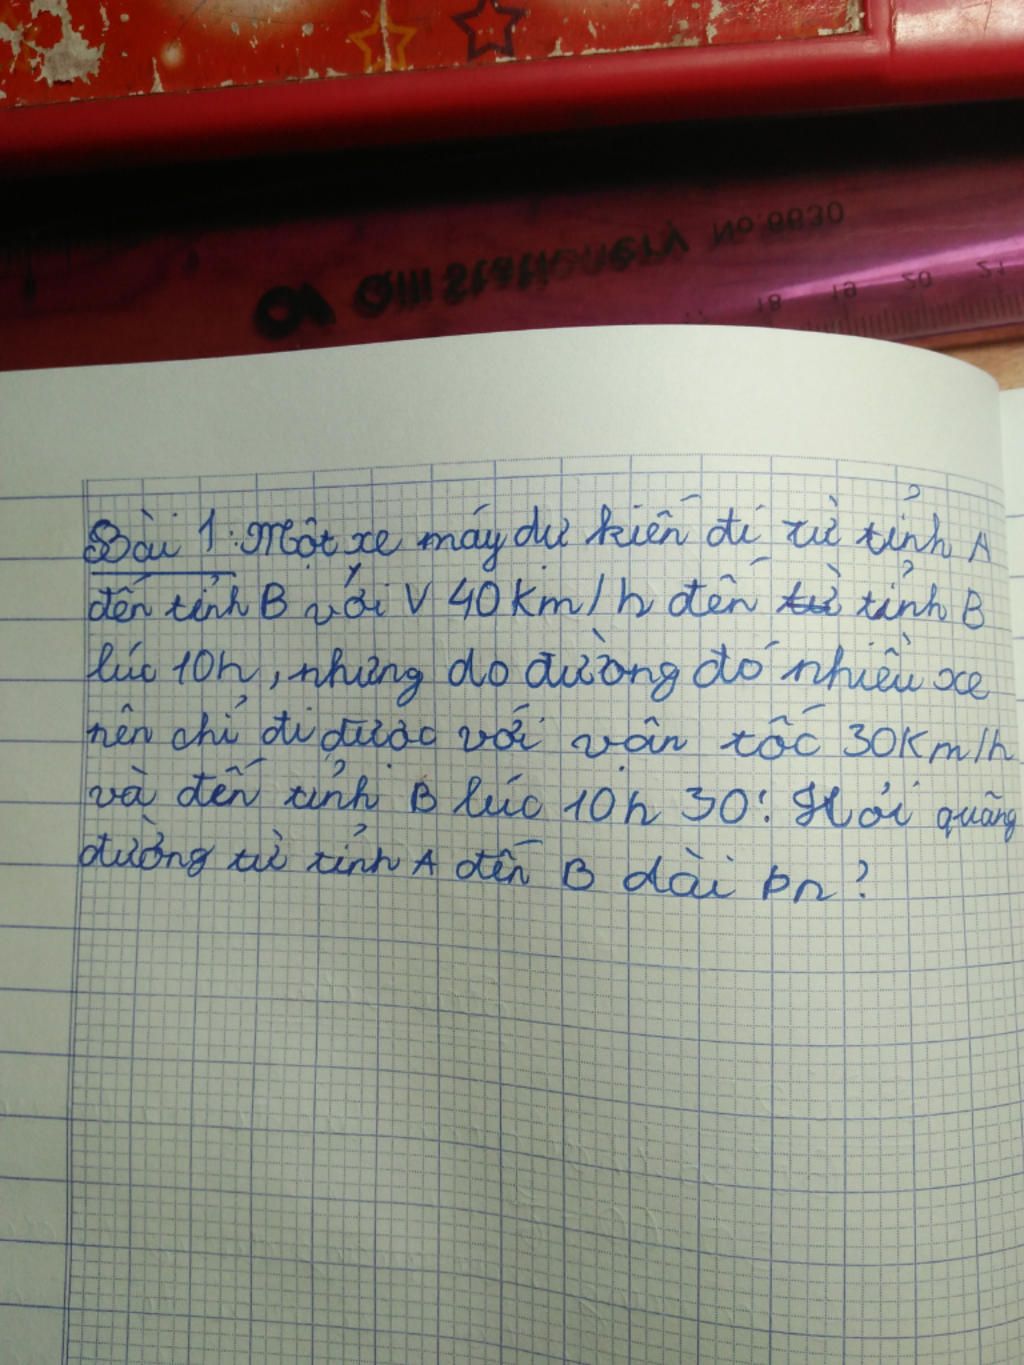 Qm Stationery No.6630
18 19 20 21
Bài 1: Một xe máy dự kiến đi từ tỉnh A
đến tỉnh B với V 40 km/h đến từ tỉnh B
lúc 10h, nhưng do đường đó nhiều xe
nên chỉ đi được với vận tốc 30 Km/h
và đến tỉnh B lúc 10h 30'. Hỏi quãng
đường từ tỉnh A đến B dài bn?